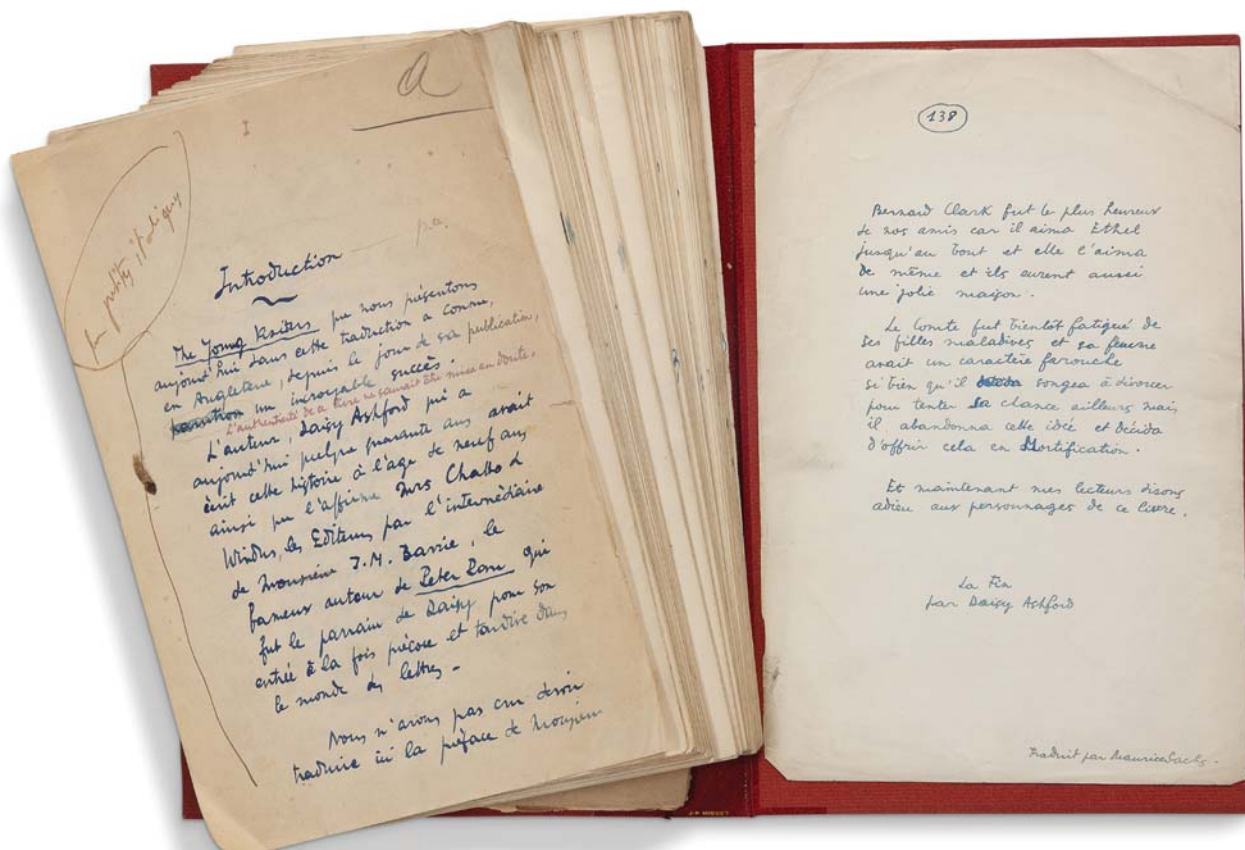 a
I
en petites italiques
Introduction
The Young Visiters que nous présentons
aujourd'hui dans cette traduction a connu,
en Angleterre, depuis le jour de sa publication,
un incroyable succès.
L'authenticité de ce livre ne saurait être mise en doute.
L'auteur, Daisy Ashford qui a
aujourd'hui quelque quarante ans avait
écrit cette histoire à l'age de neuf ans
ainsi que l'affirme Mrs Chatto &
Windus, les Editeurs par l'intermédiaire
de Monsieur J.M. Barrie, le
fameux auteur de Peter Pan qui
fut le parrain de Daisy pour son
entrée à la fois précoce et tardive dans
le monde des lettres -
Nous n'avons pas cru devoir
traduire ici la préface de Monsieur
138
Bernard Clark fut le plus heureux
de nos amis car il aima Ethel
jusqu'au bout et elle l'aima
de même et ils eurent aussi
une jolie maison.
Le Comte fut bientôt fatigué de
ses filles maladives et sa femme
avait un caractère farouche
si bien qu'il songea à divorcer
pour tenter sa chance ailleurs mais
il abandonna cette idée et décida
d'offrir cela en Mortification.
Et maintenant mes lecteurs disons
adieu aux personnages de ce livre.
La Fin
par Daisy Ashford
Traduit par Maurice Sachs.